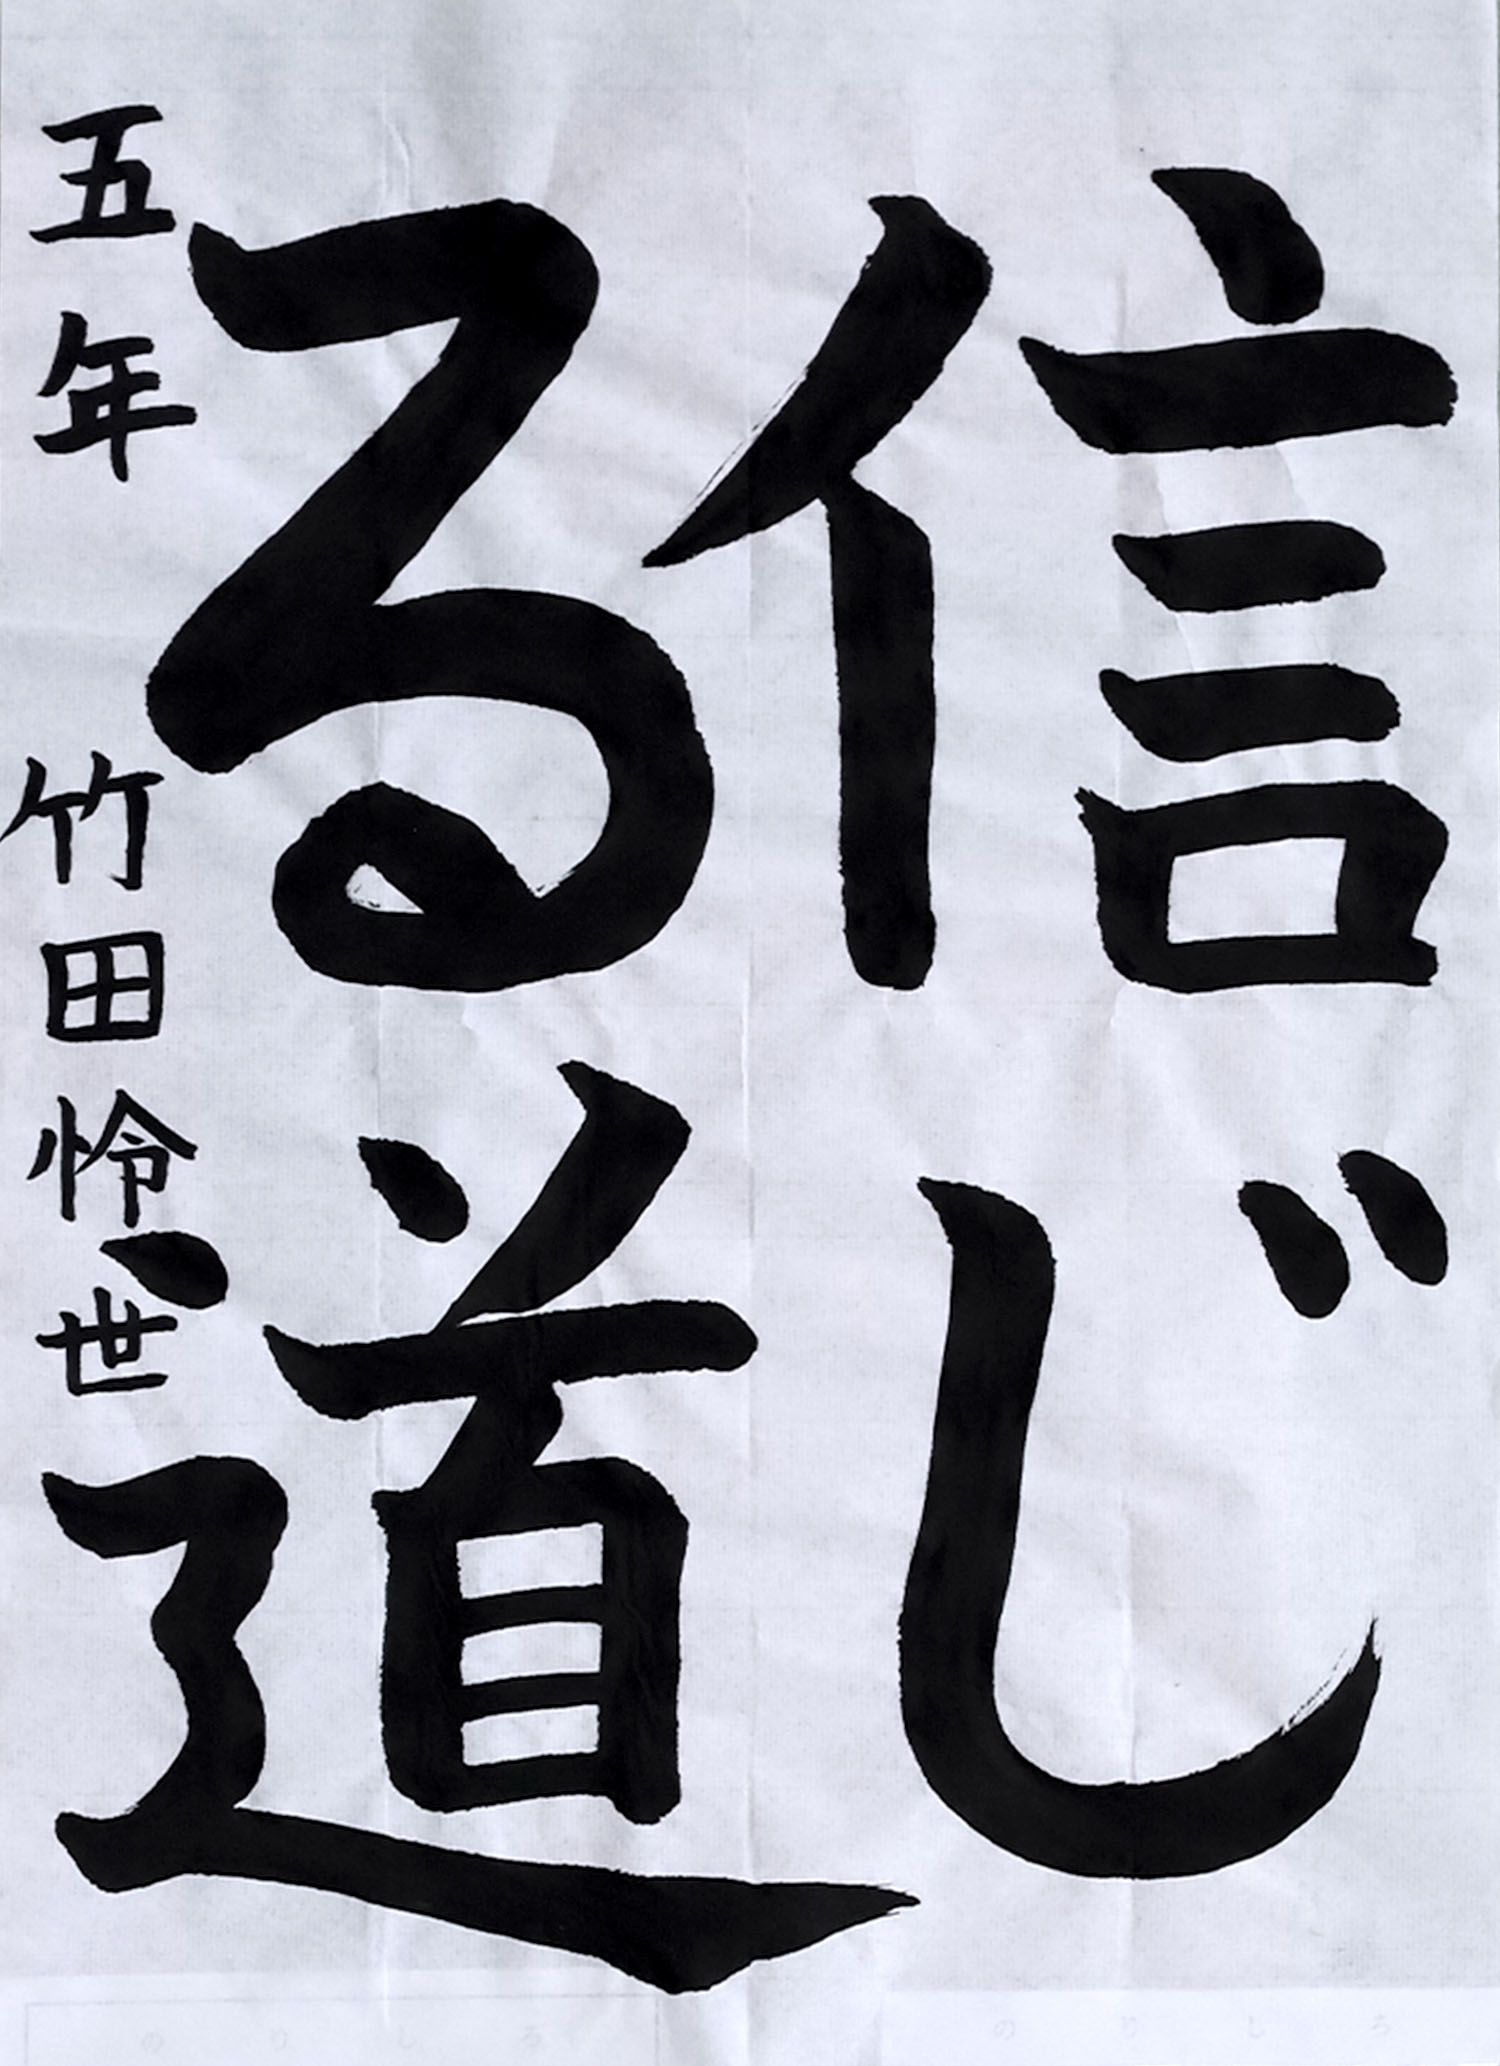 信じ
る道
五年 竹田怜世